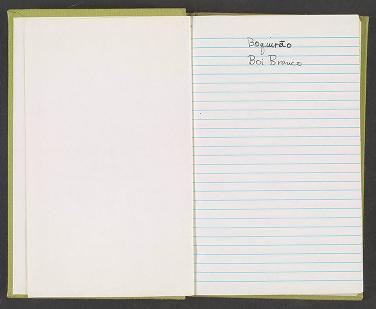 Boqueirão
Boi Branco